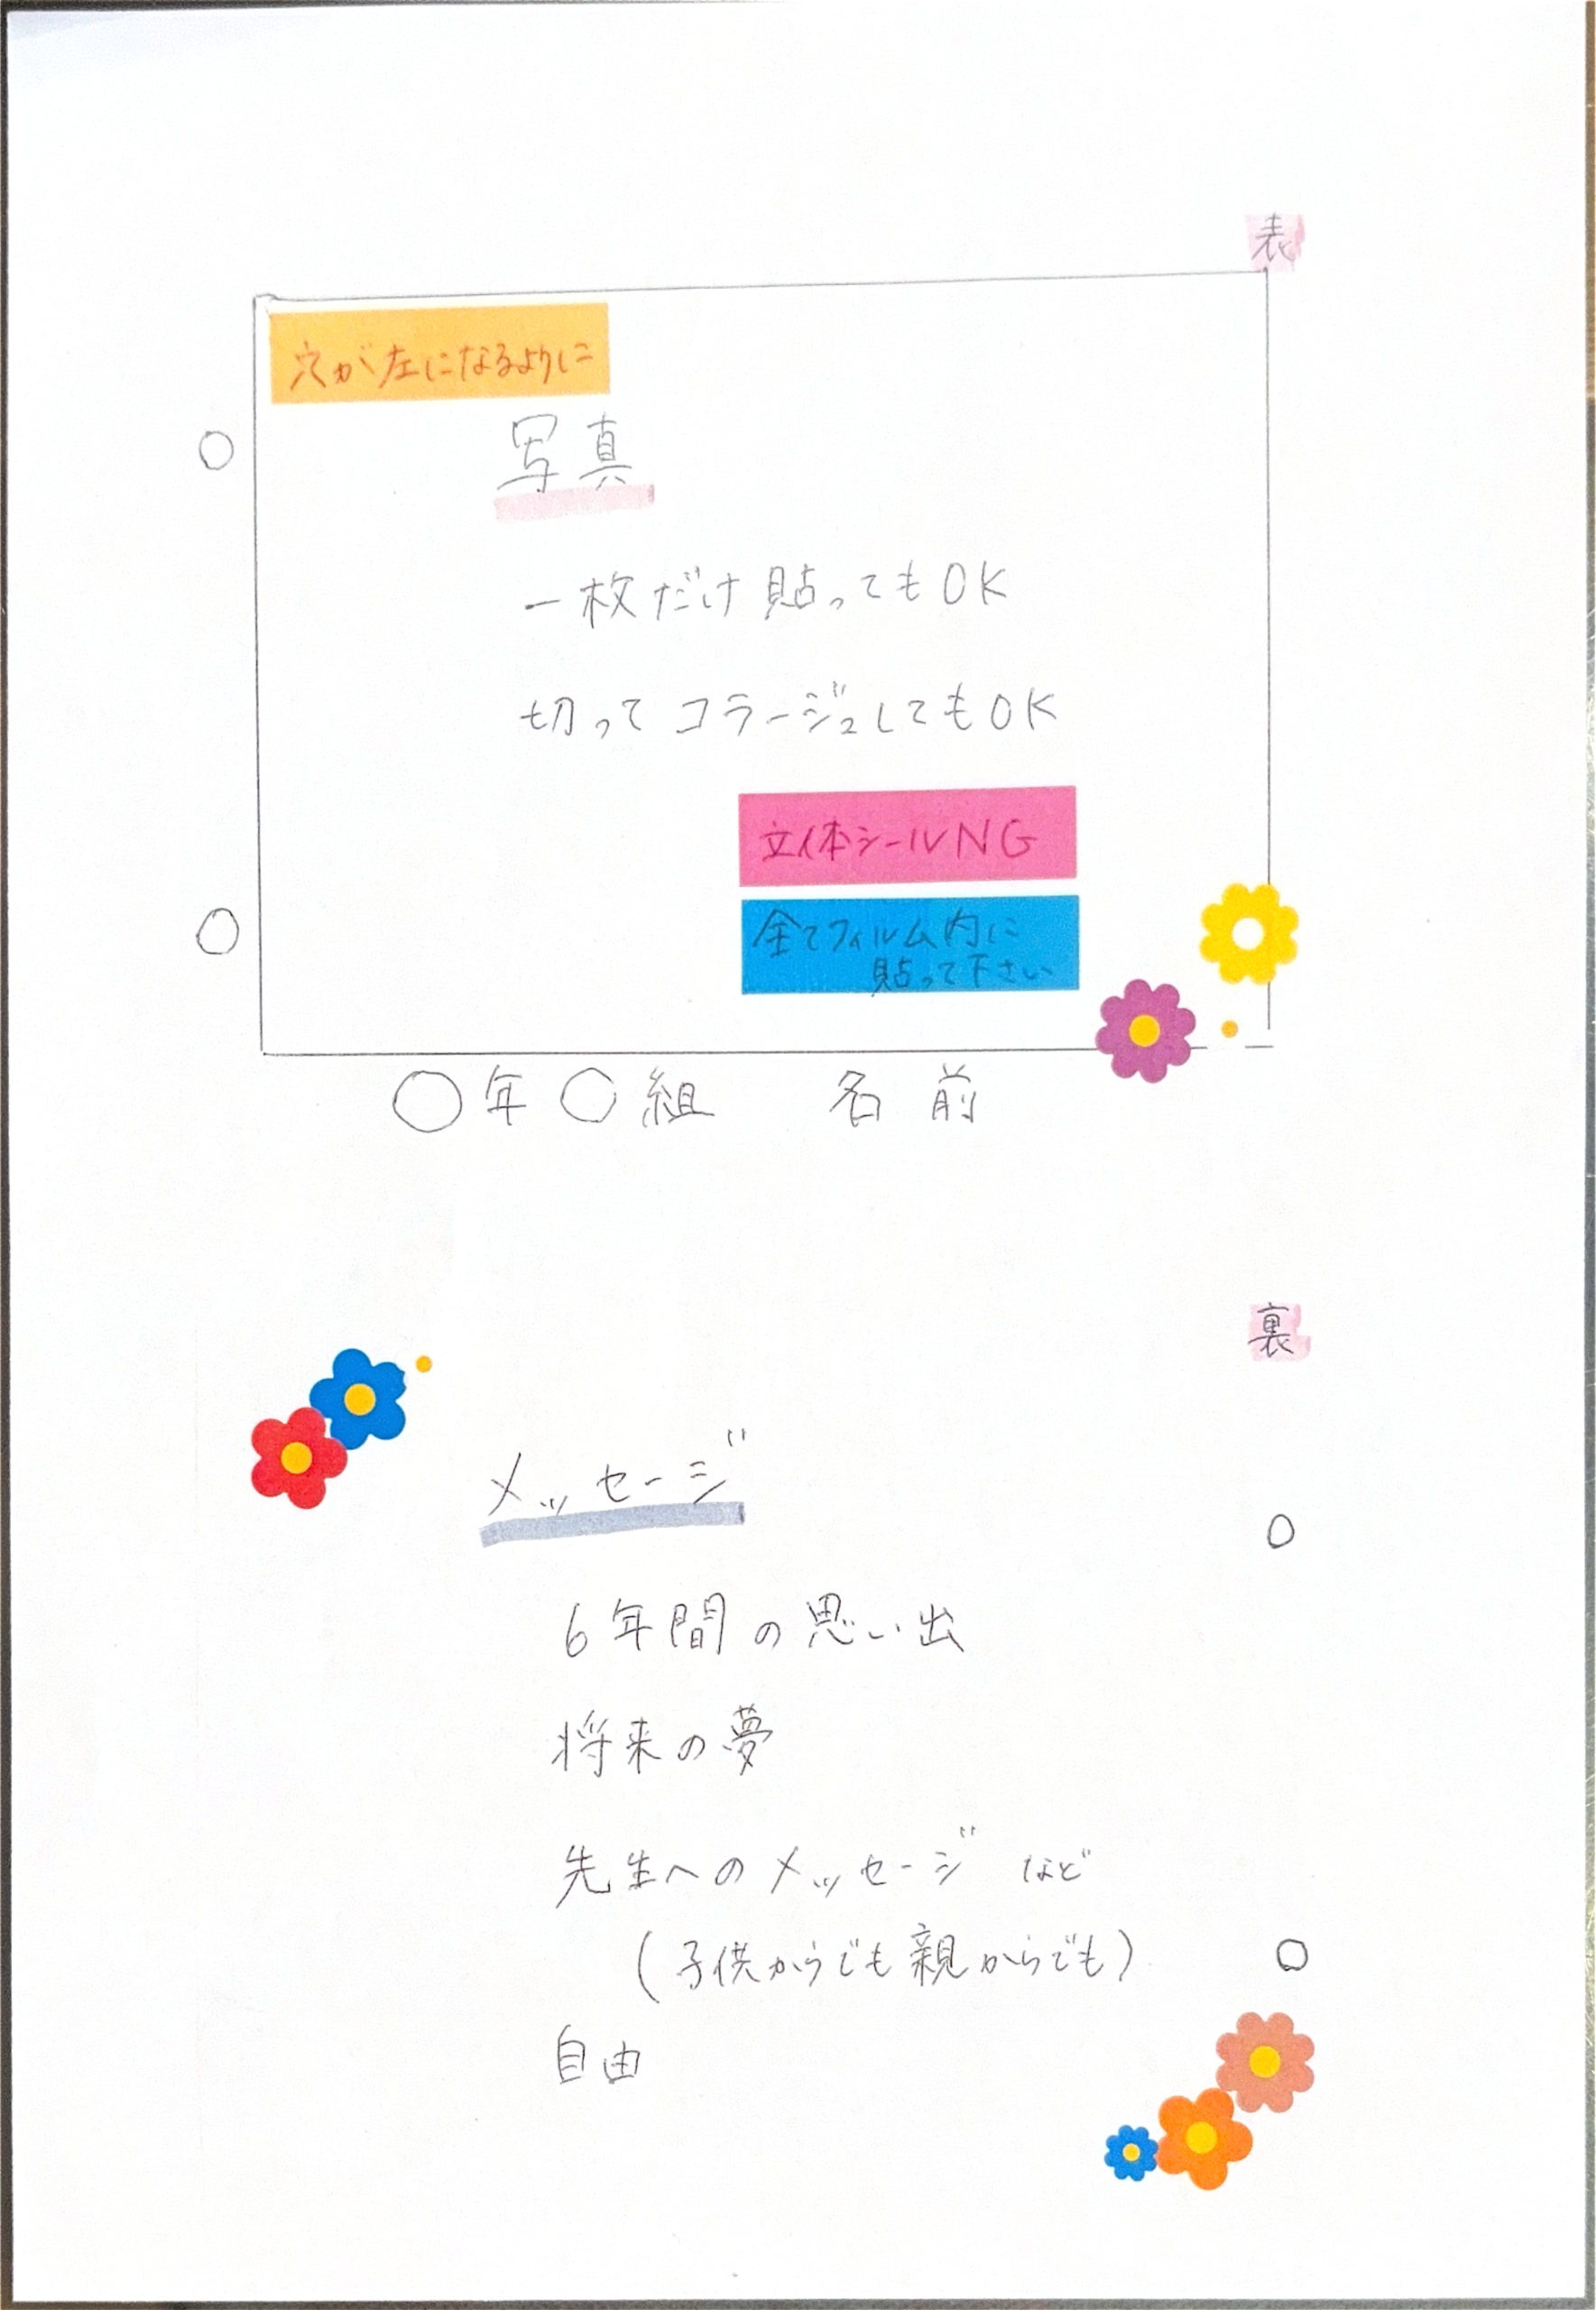 表
穴が左になるように
写真
一枚だけ貼ってもOK
切ってコラージュしてもOK
立体シールNG
全てフィルム内に
貼って下さい
〇年〇組 名前
裏
メッセージ
6年間の思い出
将来の夢
先生へのメッセージ など
(子供からでも親からでも)
自由